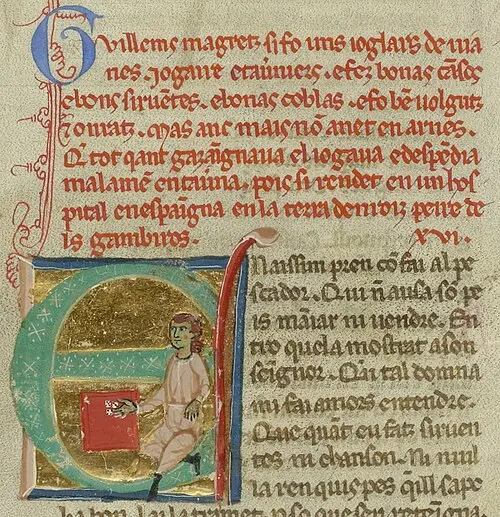 Guillems magretz si fo uns ioglars de uia
nes. Jogaire etauiners. efez bonas cãsos
ebons siruẽtes. ebonas coblas. efo bẽ uolgutz
⁊onratz. Mas anc mais nõ anet en arnes.
Q̃ tot qant gazaigna̅ua el iogaua edespẽdia
malamẽ entauna. pois si rendet en un hos
pital enespaigna enla terra denroiz peire de
is gambiros. XVI.
Enaissim pren cõ fai al pe
scador. Qui ñ ausa sõ pe
is mãiar ni uendre. En
tro quel a mostrat a son
seignor. Qui tal domna
mi fai amors entendre.
Que quãt eu fatz siruen
tes ni chanson. Ni nuil
la ren quis pes qill sapc